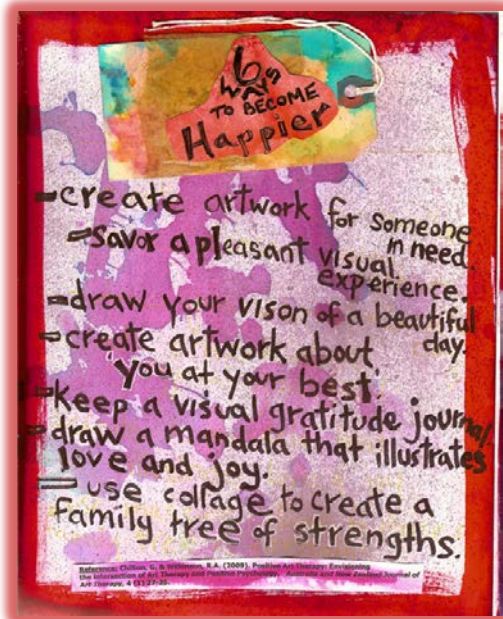 6
WAYS
TO BECOME
Happier
-create artwork for someone
in need.
-Savor a pleasant visual
experience.
-draw your vison of a beautiful
day.
-create artwork about
"you at your best."
-keep a visual gratitude journal.
-draw a mandala that illustrates
love and joy.
- use collage to create a
family tree of strengths.
Reference: Chilton, G. & Wilkinson, R.A. (2009). Positive Art Therapy: Envisioning
the intersection of Art Therapy and Positive Psychology. Australia and New Zealand Journal of
Art Therapy, 4 (1) 27-35.